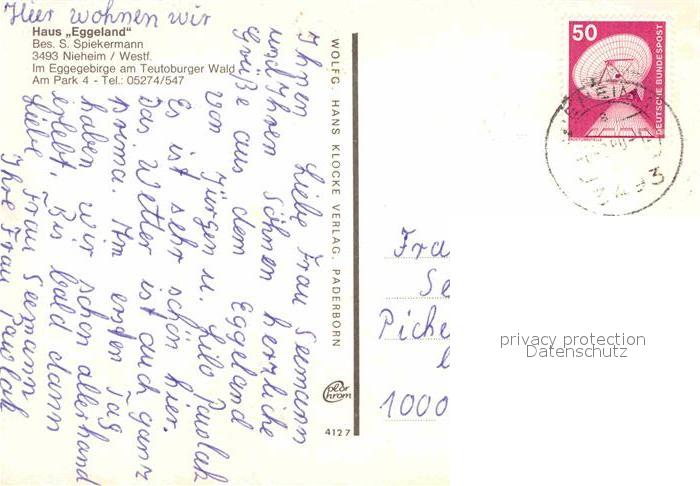 Hier wohnen wir
Haus „Eggeland"
Bes. S. Spiekermann
3493 Nieheim / Westf.
Im Eggegebirge am Teutoburger Wald
Am Park 4 - Tel.: 05274/547
Liebe Frau Seemann
Ihnen
und Ihren Söhnen herzliche
Grüße aus dem Eggeland
von Jürgen u. Lilo Pawlak
Es ist sehr schön hier.
Das Wetter ist auch ganz
prima. Am ersten Tag
haben wir schon allerhand
erlebt. Bis bald dann
Liebe Frau Seemann
Ihre Frau Pawlak
WOLFG. HANS KLOCKE VERLAG, PADERBORN
color
chrom
4127
50
DEUTSCHE BUNDESPOST
3493
Fra
Se
Piche
1000
privacy protection
Datenschutz